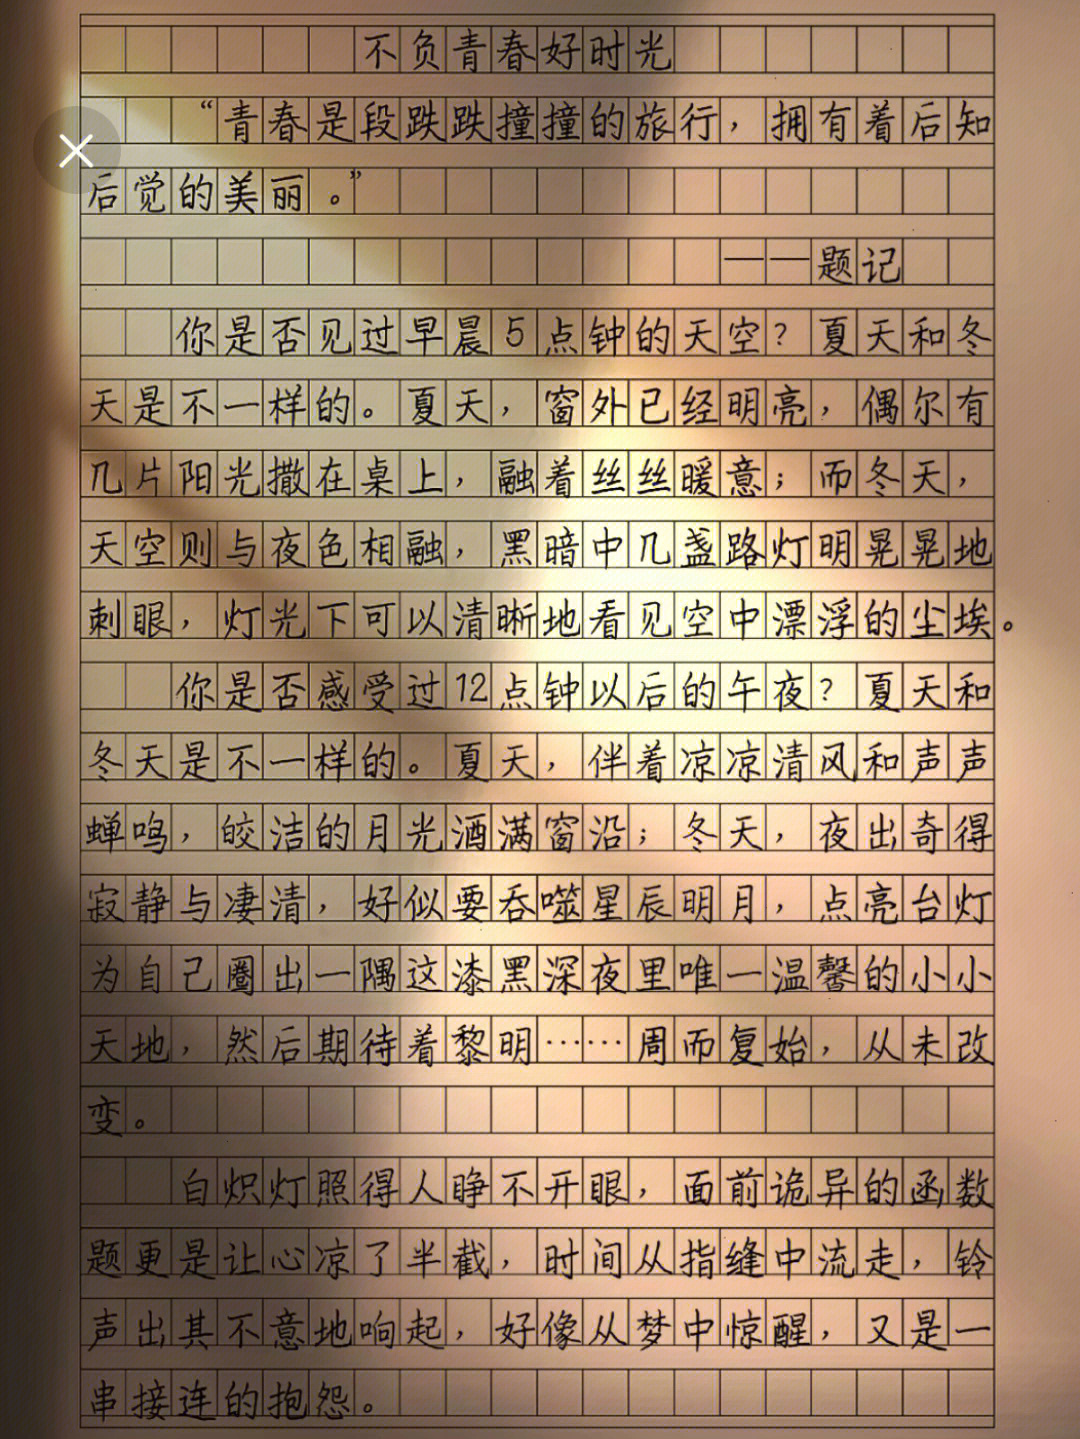 不负青春好时光
“青春是段跌跌撞撞的旅行，拥有着后知
后觉的美丽。”
——题记
你是否见过早晨5点钟的天空？夏天和冬
天是不一样的。夏天，窗外已经明亮，偶尔有
几片阳光撒在桌上，融着丝丝暖意；而冬天，
天空则与夜色相融，黑暗中几盏路灯明晃晃地
刺眼，灯光下可以清晰地看见空中漂浮的尘埃。
你是否感受过12点钟以后的午夜？夏天和
冬天是不一样的。夏天，伴着凉凉清风和声声
蝉鸣，皎洁的月光洒满窗沿；冬天，夜出奇得
寂静与凄清，好似要吞噬星辰明月，点亮台灯
为自己圈出一隅这漆黑深夜里唯一温馨的小小
天地，然后期待着黎明……周而复始，从未改
变。
白炽灯照得人睁不开眼，面前诡异的函数
题更是让心凉了半截，时间从指缝中流走，铃
声出其不意地响起，好像从梦中惊醒，又是一
串接连的抱怨。